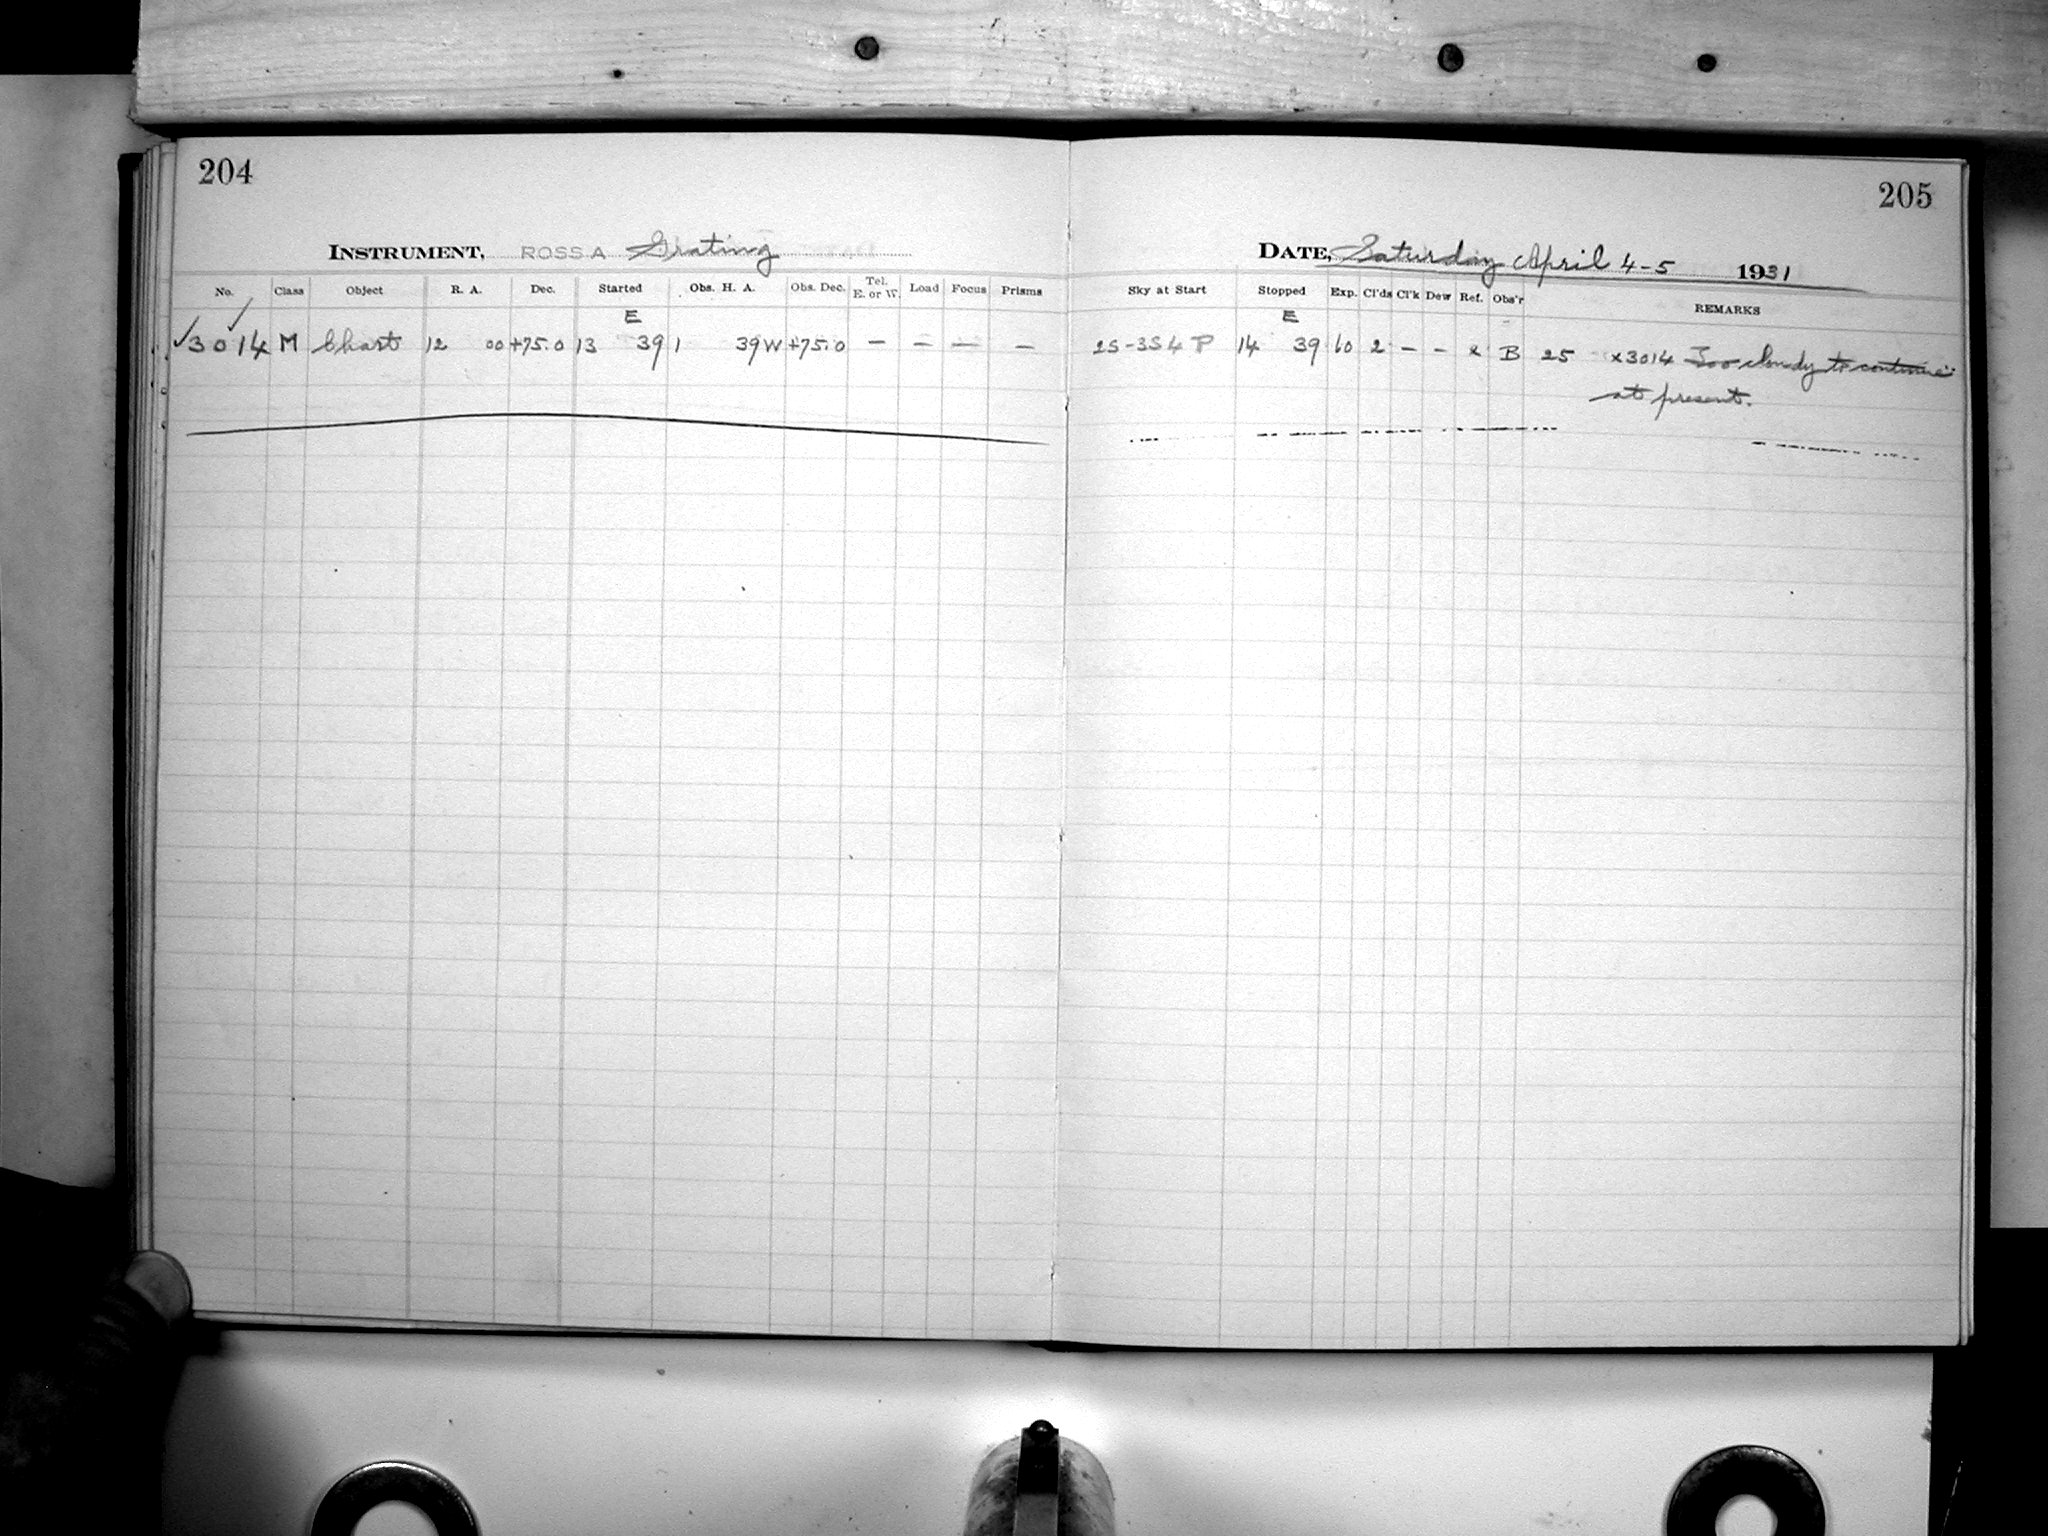 204
205
INSTRUMENT, ROSS A Grating
DATE, Saturday April 4-5 1931
No. Class Object R. A. Dec. Started Obs. H. A. Obs. Dec. Tel. E. or W. Load Focus Prisms
Sky at Start Stopped Exp. Cl'ds Cl'k Dew Ref. Obs'r REMARKS
E
E
3014 M Chart 12 00 +75.0 13 39 1 39W +75.0 - - - -
2S-3S4 P 14 39 60 2 - - x B 25 x3014 Too cloudy to continue
at present.